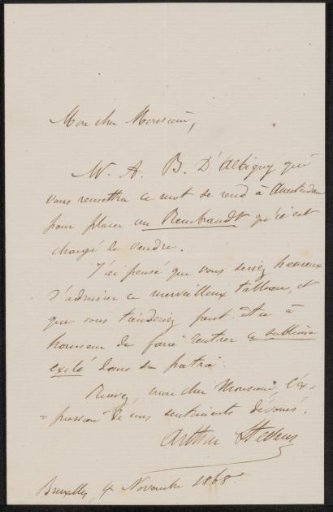 Mon cher Monsieur,
M. A. B. D'Albigny qui
vous remettra ce mot se rend à Amsterdam
pour placer un Rembrandt qu'il est
chargé de vendre.
J'ai pensé que vous seriez heureux
d'admirer ce merveilleux tableau, et
que vous tiendriez peut être à
honneur de faire rentrer ce sublime
exilé dans sa patrie.
Recevez, mon cher Monsieur, l'ex-
pression de mes sentiments dévoués.
Arthur Stevens
Bruxelles, 4 Novembre 1868